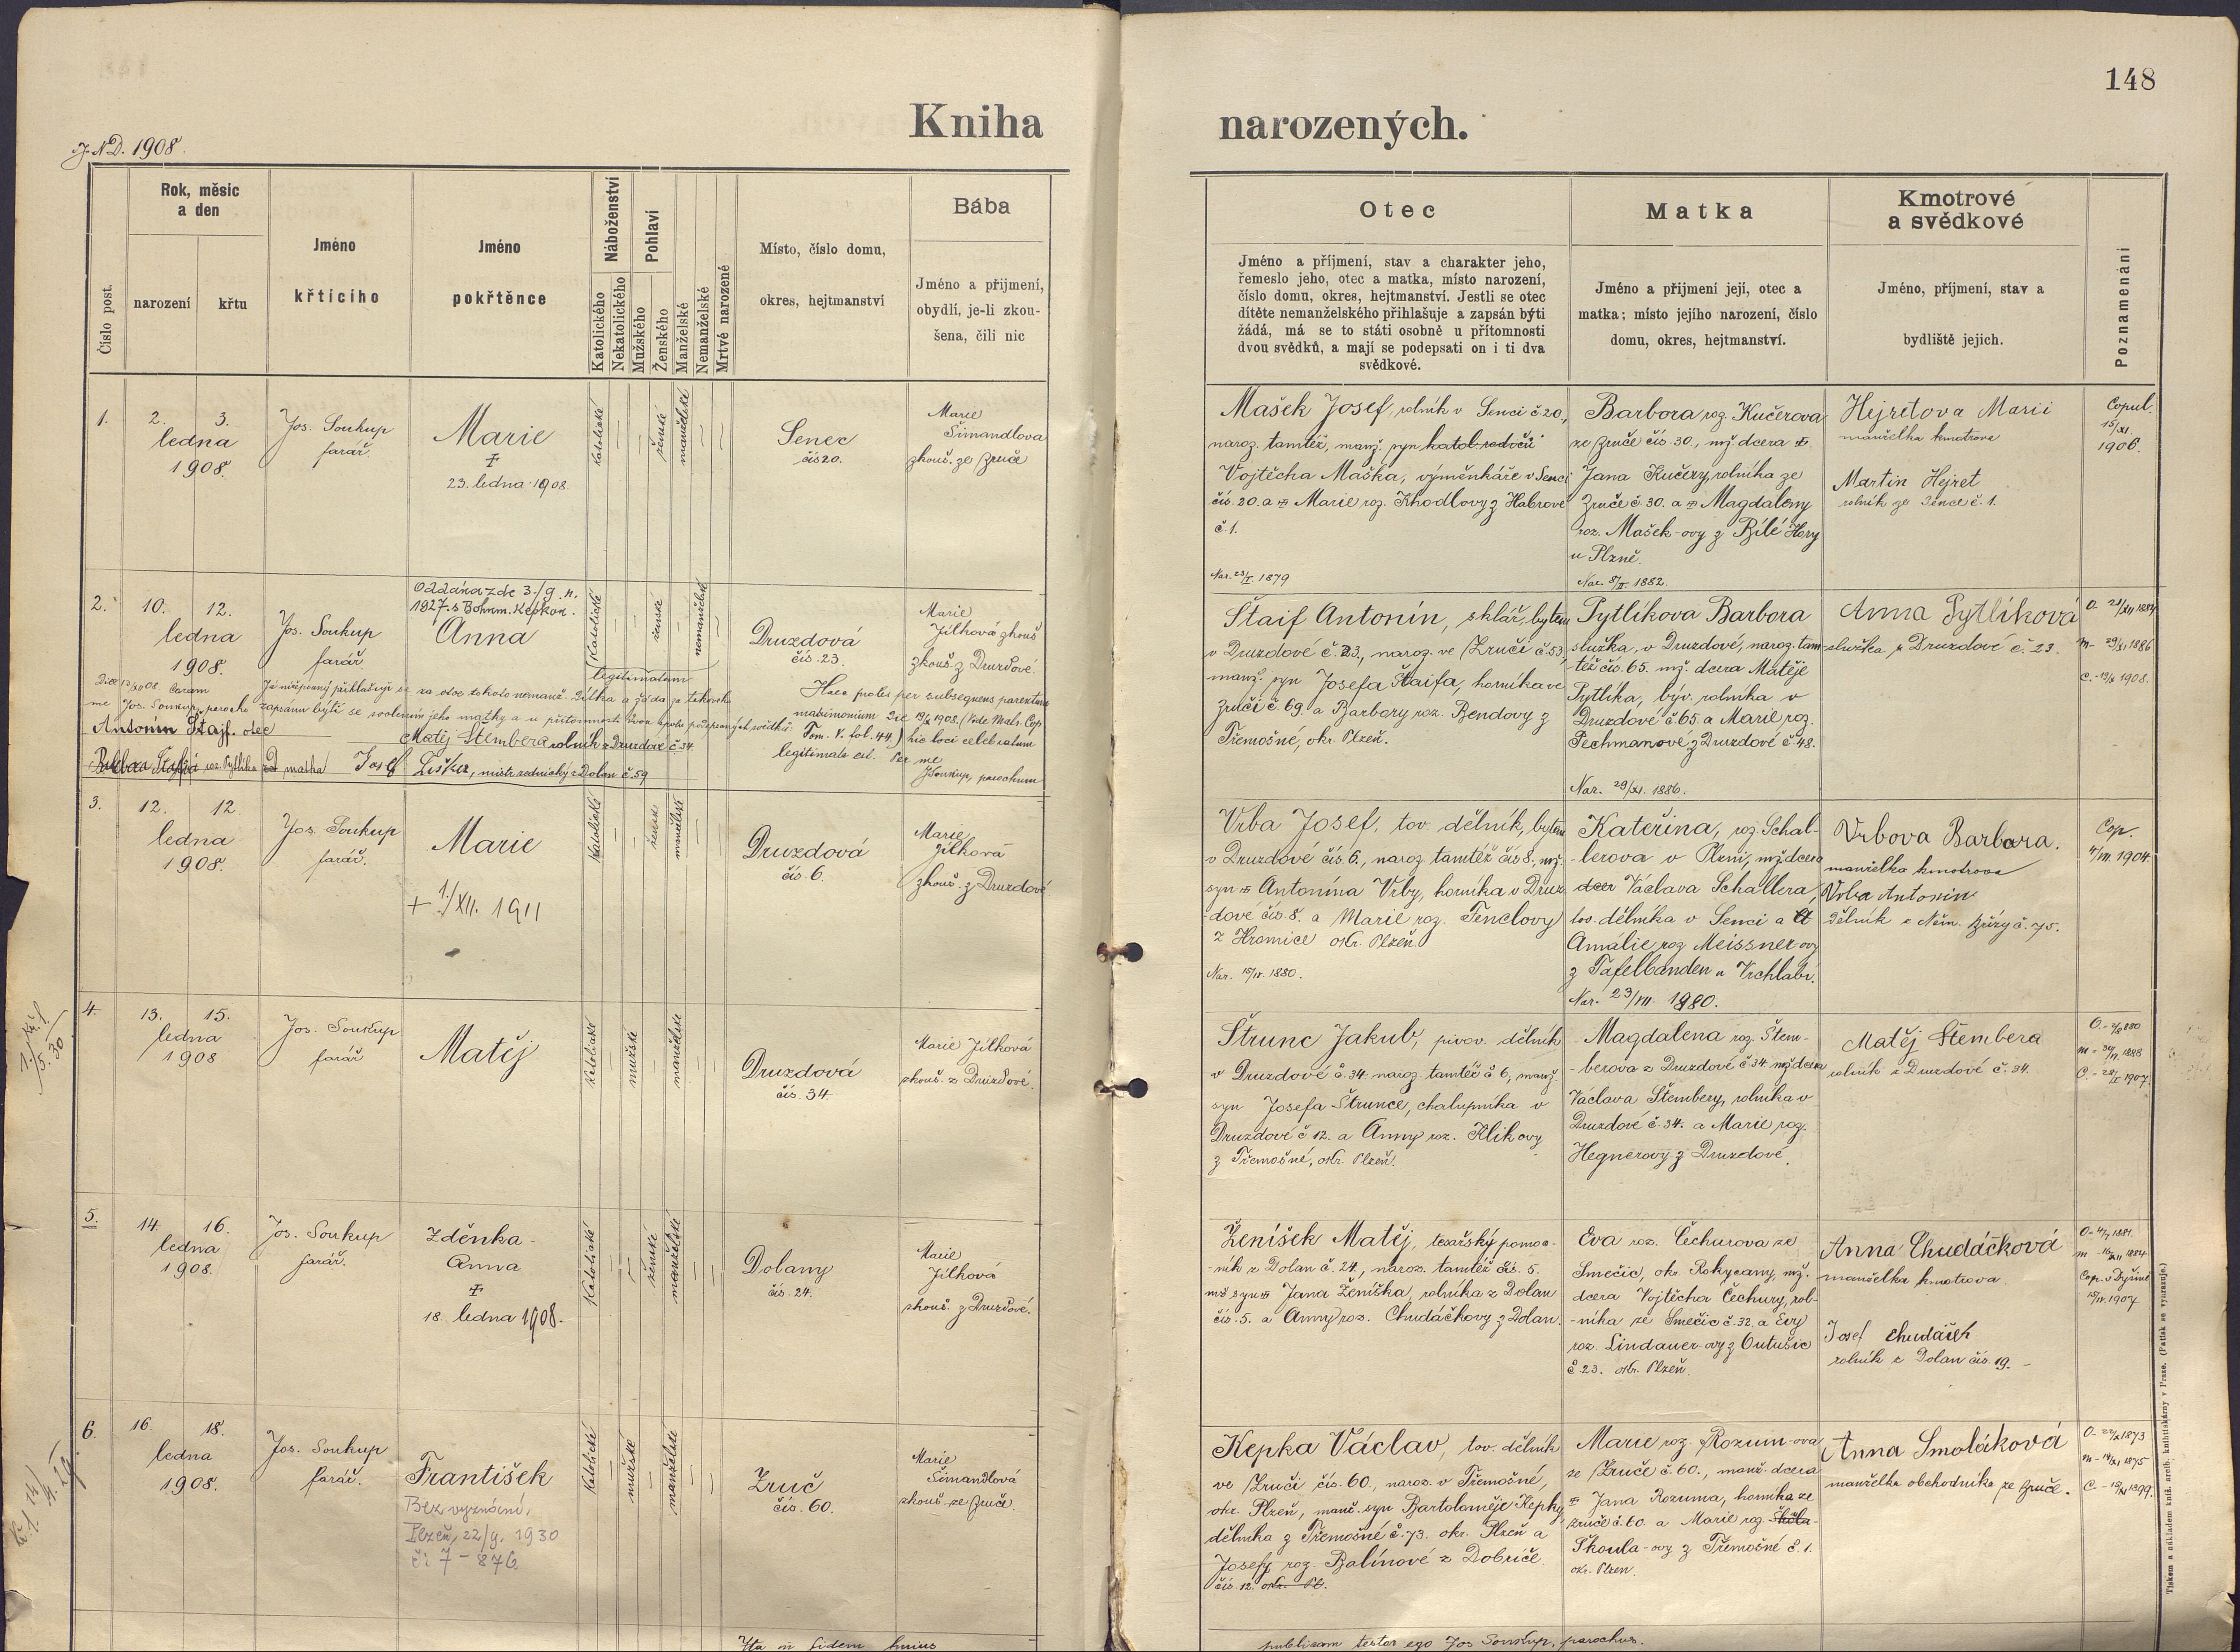 148
Kniha narozených.
J. N. D. 1908.
Číslo post.
Rok, měsíc
a den
narození
křtu
Jméno
křtícího
Jméno
pokřtěnce
Náboženství
Katolického
Nekatolického
Pohlaví
Mužského
Ženského
Manželské
Nemanželské
Mrtvě narozené
Místo, číslo domu,
okres, hejtmanství
Bába
Jméno a přijmení,
obydlí, je-li zkou-
šena, čili nic
Otec
Jméno a příjmení, stav a charakter jeho,
řemeslo jeho, otec a matka, místo narození,
číslo domu, okres, hejtmanství. Jestli se otec
dítěte nemanželského přihlašuje a zapsán býti
žádá, má se to státi osobně u přítomnosti
dvou svědků, a mají se podepsati on i ti dva
svědkové.
Matka
Jméno a přijmení její, otec a
matka; místo jejího narození, číslo
domu, okres, hejtmanství.
Kmotrové
a svědkové
Jméno, příjmení, stav a
bydliště jejich.
Poznamenání
1.
2. 3.
ledna
1908.
Jos. Soukup
farář.
Marie
23. ledna 1908
katolické
ženské
manželské
Senec
čís 20.
Marie
Šimandlova
zkouš. ze Zruče
Mašek Josef, rolník v Senci č 20,
naroz. tamtéž, manž. syn katol. rodičů
Vojtěcha Maška, výměnkáře v Senci
čís. 20. a Marie roz. Khodlovy z Habrové
č. 1.
Nar. 23/I. 1879
Barbora roz. Kučerova
ze Zruče čís. 30., mž dcera
Jana Kučery, rolníka ze
Zruče č. 30. a Magdaleny
roz. Mašek-ovy z Bílé Hory
u Plzně.
Nar. 8/II. 1882.
Hejretova Marii
manželka kmotrova
Martin Hejret
rolník ze Sence č. 1.
Copul.
15/XI.
1906.
2.
10. 12.
ledna
1908.
Jos. Soukup
farář.
Oddána zde 3./9. n.
1927. s Bohum. Kepkou.
Anna
Katolické
ženské
nemanželské
legitimatum
Druzdová
čís. 23.
Marie
Jílková zkouš
zkouš. z Druzdové.
Já níže psaný přihlašuji se za otce tohoto nemanž. dítka a žádá za takového
me Jos. Soukup, parocho zapsánu býti se svolením jeho matky a u přítomnosti dvou spolu podepsaných svědků:
Antonín Štajf. otec
Matěj Štembera rolník z Druzdové č 34
Barbora Štajfová roz. Pytlíka matka
Josef Liška, mistr zednický z Dolan č. 59
Haec proles per subsequens parentum
matrimonium die 19/X 1908. (Vide Matr. Cop.
Tom. V. fol. 44.) hic loci celebratum
legitimata est. Per me
J Soukup, parochum
Štaif Antonín, sklář, bytem
v Druzdové č. 23., naroz. ve Zruči č. 53,
manž. syn Josefa Štaifa, horníka ve
Zruči č. 69. a Barbory roz. Bendovy z
Třemošné, okr. Plzeň.
Pytlíkova Barbora
služka, v Druzdové, naroz. tam-
též čís. 65. mž. dcera Matěje
Pytlíka, býv. rolníka v
Druzdové č 65. a Marie roz.
Pechmanové z Druzdové č. 48.
Nar. 29/XI. 1886.
Anna Pytlíková
služka z Druzdové č. 23.
O. 21/XII 1884
m- 29/XI 1886
C. - 19/X 1908.
3.
12. 12.
ledna
1908.
Jos. Soukup
farář.
Marie
+ 1./XII. 1911
Katolické
ženské
manželské
Druzdová
čís. 6.
Marie
Jílková
zkouš. z Druzdové
Vrba Josef, tov dělník, bytem
v Druzdové čís. 6., naroz. tamtéž čís 8., mž.
syn Antonína Vrby, horníka v Druz-
dové čís. 8. a Marie roz. Tenclovy
z Hromice okr. Plzeň.
Nar. 15/IX. 1880.
Kateřina, roz. Schal-
-lerova v Plzni, mž. dcera
dcer Václava Schallera,
tov. dělníka v Senci a
Amálie roz Meissner ovy
z Tafelbauden u Vrchlabí.
Nar. 23/VII. 1880.
Vrbova Barbora.
manželka kmotrova
Vrba Antonín
dělník z Něm. Břízy č. 75.
Cop.
1904.
4.
13. 15.
ledna
1908
Jos. Soukup
farář
Matěj
Katolické
mužské
manželské
Druzdová
čís. 34.
Marie Jílková
zkouš. z Druzdové.
Štrunc Jakub, pivov. dělník
v Druzdové č. 34. naroz. tamtéž č. 6, manž.
syn Josefa Štrunce, chalupníka v
Druzdové č 12. a Anny roz. Klikovy
z Třemošné, okr. Plzeň.
Magdalena roz. Štem-
-berova z Druzdové č 34. mž dcera
Václava Štembery, rolníka v
Druzdové č. 34. a Marie roz.
Hegnerovy z Druzdové.
Matěj Štembera
rolník z Druzdové č. 34.
1888
1907.
5.
14. 16.
ledna
1908.
Jos. Soukup
farář.
Zděnka-
Anna
18. ledna 1908.
Katolické
ženské
manželské
Dolany
čís. 24.
Marie
Jílková
zkouš. z Druzdové.
Ženíšek Matěj, tesařský pomoc-
-ník z Dolan č. 24, naroz. tamtéž čís. 5.
mž syn Jana Ženíška, rolníka z Dolan
čís. 5. a Anny roz. Chudáčkovy z Dolan.
Eva roz. Čechurova ze
Smečic, okr. Rokycany, mž.
dcera Vojtěcha Čechury, rol-
-níka ze Smečic č. 32. a Evy
roz. Lindauer-ovy z Outušic
č. 23. okr. Plzeň.
Anna Chudáčková
manželka kmotrova.
Josef Chudáček
rolník z Dolan čís. 19. -
1881.
1884
Cop. v Dýšině
1907
6.
16. 18.
ledna
1908.
Jos. Soukup
farář.
František
Bez vyznání,
Plzeň, 22/9. 1930
či 7 - 876
Katolické
mužské
manželské
Zruč
čís. 60.
Marie
Šimandlová
zkouš. ze Zruče.
Kepka Václav, tov. dělník
ve Zruči čís. 60., naroz. v Třemošné,
okr. Plzeň, manž. syn Bartoloměje Kepky,
dělníka z Třemošné č. 73. okr. Plzeň a
Josefy roz. Balínové z Dobříče.
čís. 12. okr. Pl.
Marie roz. Rozum-ova
ze Zruče č. 60., manž. dcera
Jana Rozuma, horníka ze
Zruče č. 60. a Marie roz.
Škoula-ovy z Třemošné č. 1.
okr. Plzeň.
Anna Smoláková
manželka obchodníka ze Zruče.
1873
1875
1899.
Ita in fidem huius
publicam testor ego Jos Soukup, parochus.
Tiskem a nákladem kníž. arcib. knihtiskárny v Praze. (Patisk se vyhrazuje.)